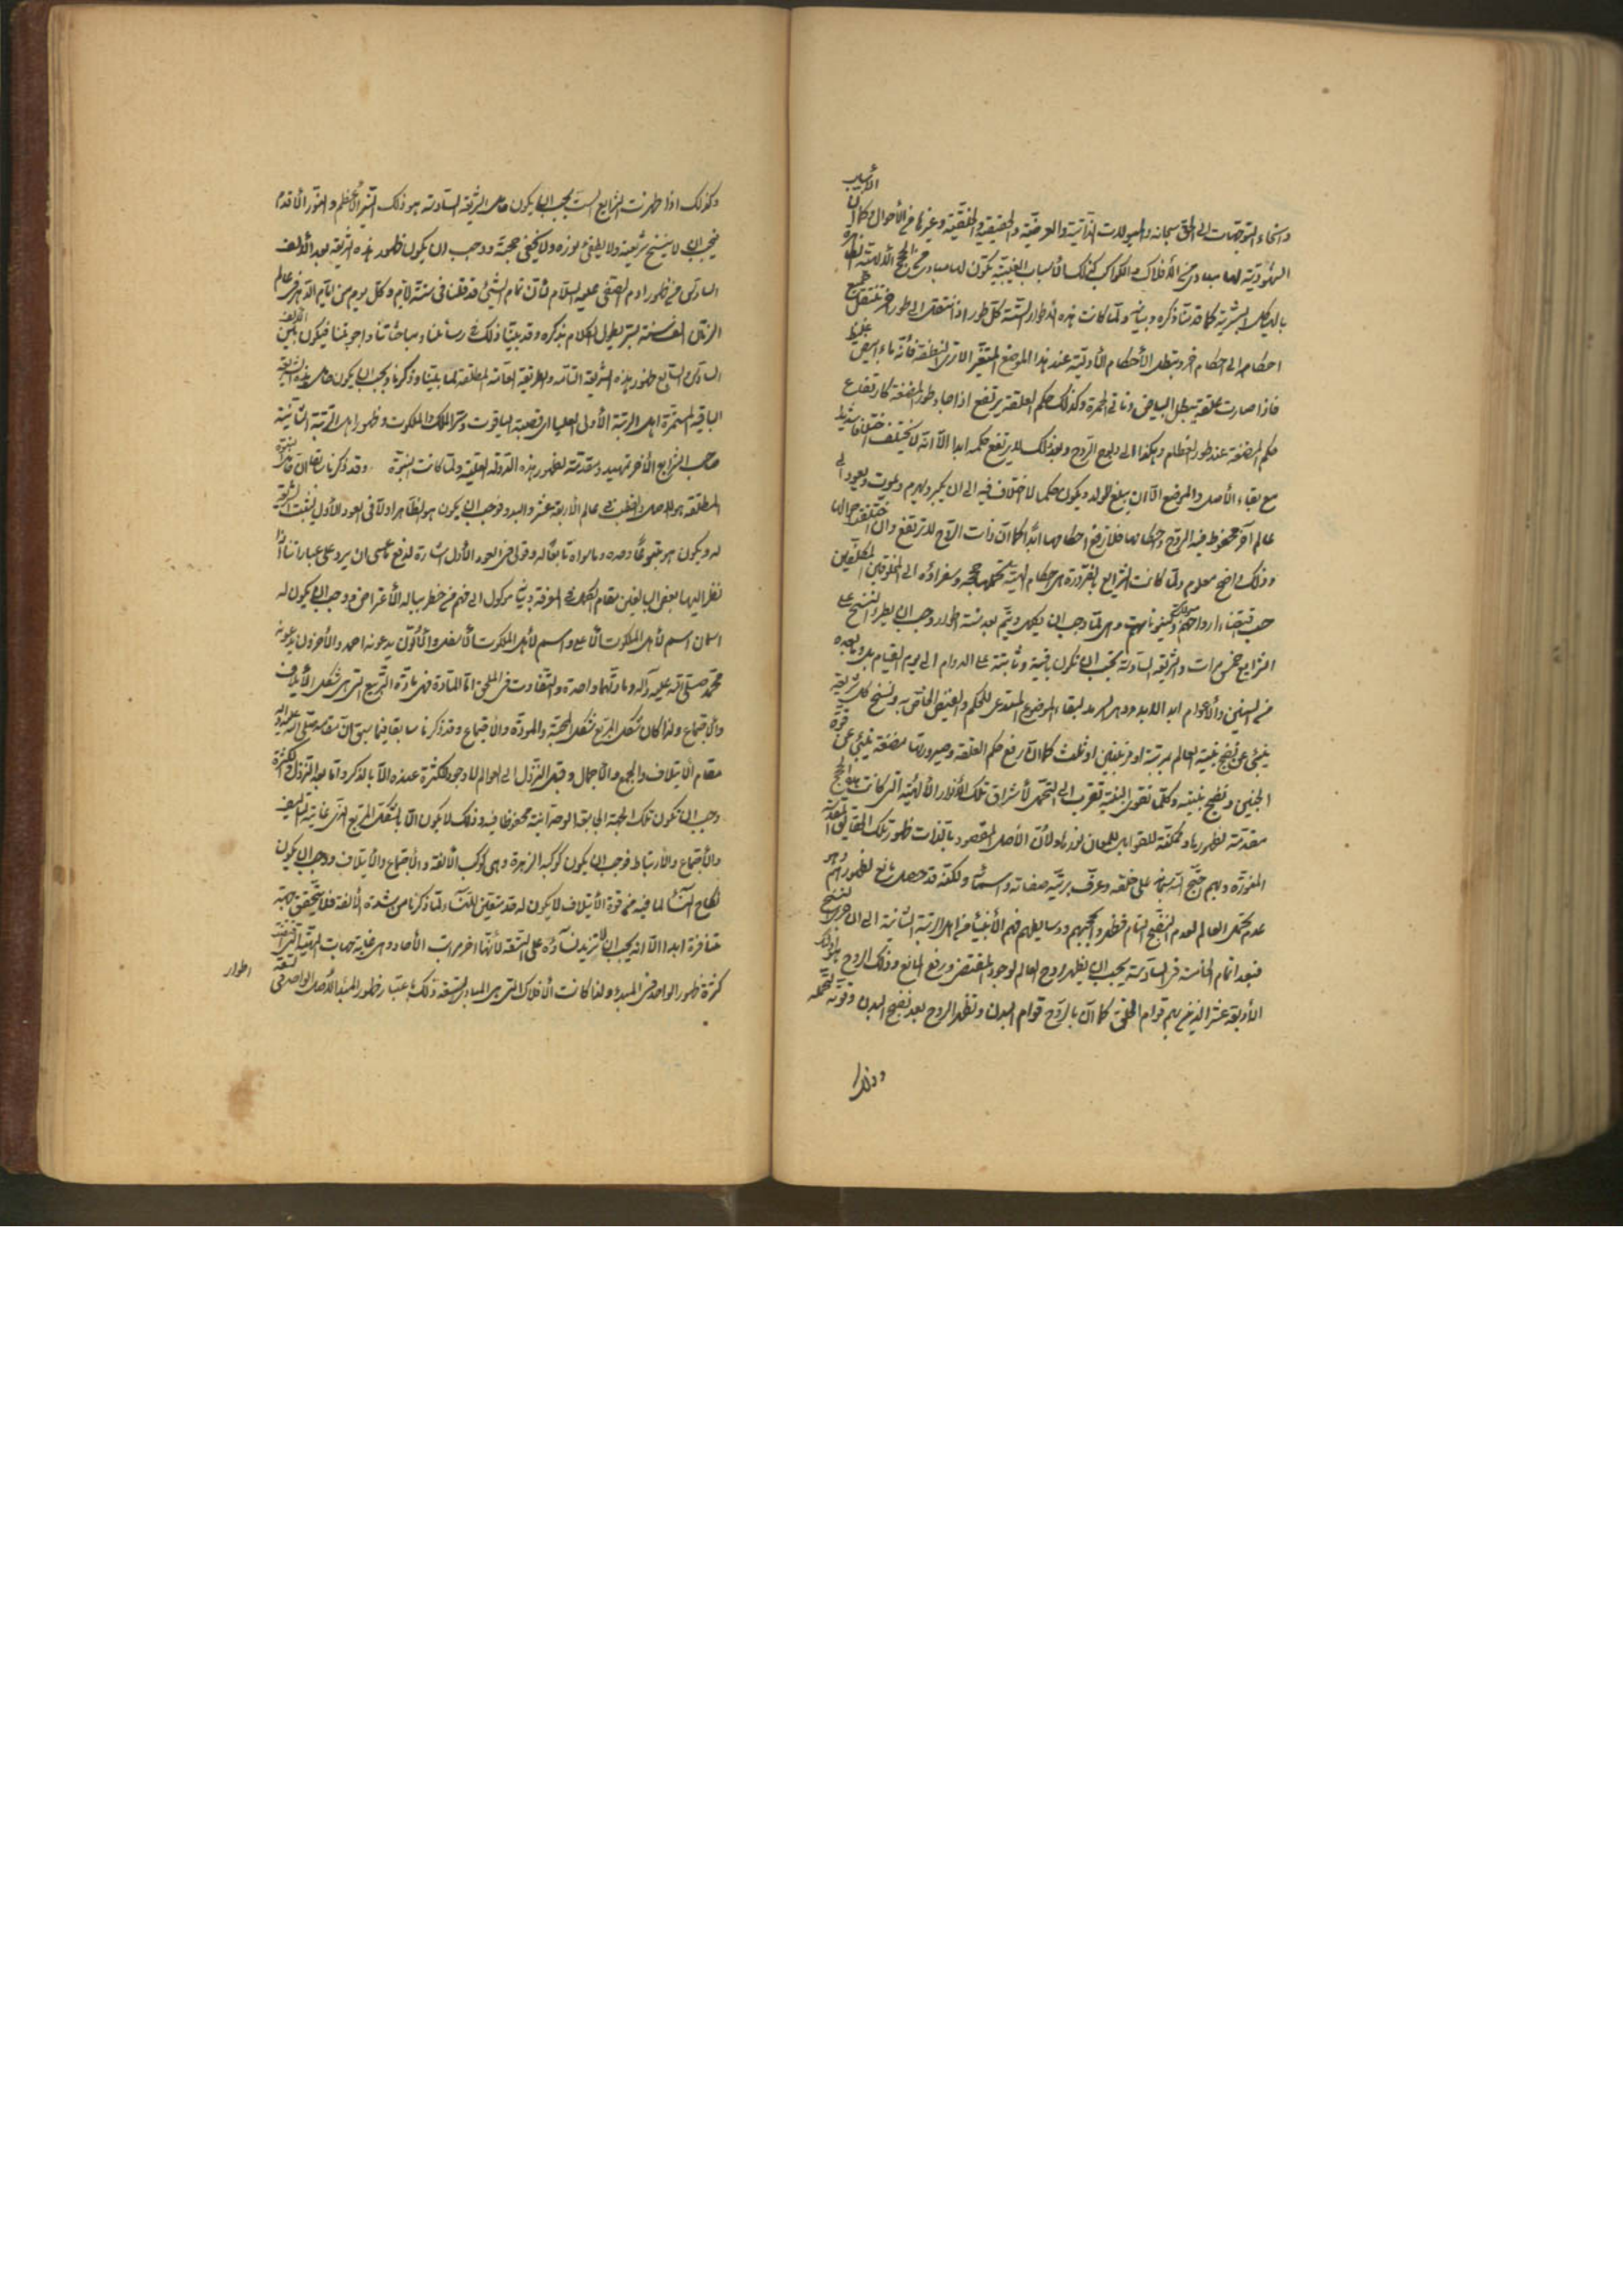 وانحاء التوجهات الى الحق سبحانه والميولات الذاتية والعرضية والحقيقية والخلقية وغيرها من الأحوال كما ان الأسباب
الشهودية لها مبادى من الأفلاك والكواكب كذلك الأسباب الغيبية يكون لها مبادى من الحجج
بالهياكل البشرية كما قدمنا ذكره وبيانه ولما كانت هذه الأطوار الستة كل طور اذا انتقل الى طور اخر ينتقل
احكامه الى احكام اخر وتبطل الأحكام الأولية عند هذا الموضع المتغير الا ترى النطفة فأنه ماء ابيض غليظ
فاذا صارت علقة يبطل البياض وتأتي الحمرة وكذلك حكم العلقة يرتفع اذا جاء طور المضغة كارتفاع
حكم المضغة عند طور العظام وهكذا الى ولوج الروح وبعد ذلك لا يرتفع حكمه ابدا الا انه لا يختلف اختلافا شديدا
مع بقاء الأصل والموضع الا ان يبلغ المولد ويكون حكما لا اختلاف فيه الى ان يكبر ويهرم ويموت ويعود الى
عالم آخر محفوظ فيه الروح واحكامها فلا ترفع احكامها ابدا كما ان ذات الروح لا ترتفع وان اختلفت احوالها
وذلك واضح معلوم ولما كانت الشرايع بالضرورة هي احكام الهية تحملها حججه وسفراؤه الى المخلوقين المكلفين
حسب اقتضاء ارواحهم وكينوناتهم وهي لما وجب ان يكمل ويتم بعد ستة اطوار وجب ان يطرء النسخ على
الشرايع خمس مرات والشريعة السادسة يجب ان تكون باقية وثابتة على الدوام الى يوم القيام بل وبعده
من السنين والأعوام ابد الابد ودهر السرمد لبقاء الموضوع المستدعي للحكم والفيض الخاص به ونسخ كل شريعة
ينبئ عن نضج بنية العالم بمرتبة او مرتبتين او ثلث كما ان رفع حكم العلقة وصيرورتها مضغة ينبئ عن قوة
الجنين ونضج بنيته وكلما تقوى البنية تقرب الى التحمل لأشراق تلك الأنوار الألهية التي كانت هذه الحجج
مقدمة لظهورها ومكملة للقوابل للمعان نورها ولأن الأصل المقصود بالذات ظهور تلك الحقايق المقدسة
المنورة وبهم احتج الله سبحانه على خلقه وعرف بريته صفاته واسمائه ولكنه قد حصل مانع لظهورهم وهو
عدم تحمل العالم لعدم النضج التام فظهر وا حججهم ووسايطهم فهم الأنبياء من اهل الرتبة الثانية الى ان جرى النسخ
فبعد اتمام الخامسة في السادسة يجب ان يظهر روح العالم لوجود المقتضى ورفع المانع وذلك الروح هو اولئك
الأربعة عشر الذين بهم قوام الخلق كما ان بالروح قوام البدن وتظهر الروح بعد نضج البدن وقوته وتحمله
وكذلك اذا ظهرت الشرايع الست يجب ان يكون حامل الشريعة السادسة هو ذلك النير الأعظم والنور الأقدم
فيجب ان لا ينسخ شريعته ولا يطفئ نوره ولا يخفى حجته ووجب ان يكون ظهور هذه الشريعة بعد الألف
السادس من ظهور ادم الصفى عليه السلام لأن تمام الشئ قد قلنا في ستة ايام وكل يوم من ايام الدهر في عالم
الزمان الف سنة بسر يطول الكلام بذكره وقد بينا ذلك في رسائلنا ومباحثاتنا واجوبتنا فيكون بين الألف
السادس والسابع ظهور هذه الشريعة التامة والطريقة العامة المطلقة لما بينا وذكرنا ويجب ان يكون حامل هذه الشريعة
الباقية المستمرة اهل الرتبة الأولى العليا اي قصبة الياقوت وسر الملك والملكوت وظهور اهل الرتبة الثانية
صاحب الشرايع الأخر تمهيد ومقدمة لظهور هذه الدولة العلية ولما كانت النبوة وقد ذكرنا سابقا ان النبوة
المطلقة هو للاصل والقطب في عالم الأربعة عشر والبدو فوجب ان يكون هو الظاهر اولا في العود الأول ليثبت الشرف
له ويكون هو متبوعا وحده وما سواه تابعا له وقولي في العود الأول اشارة لدفع ما عسى ان يرد على عباراتنا اذا
نظر اليها بعض البالغين مقام الكمال في المعرفة وبيانه موكول الى فهم من خطر بباله الأعتراض ووجب ان يكون له
اسمان اسم لأهل الملكوت الأعلى واسم لأهل الملكوت الأسفل والأولون يدعونه احمد والأخرون يدعونه
محمد صلى الله عليه وآله ومادتهما واحدة والتفاوت في الملحق اما المادة فهي مادة التربيع التي هي شكل الأيتلاف
والأجتماع ولذا كان شكل المربع شكل المحبة والمودة والأجتماع وقد ذكرنا سابقا فيما سبق ان مقامه صلى الله عليه وآله
مقام الأيتلاف والجمع والأجمال وقبل التنزل الى العوالم لا وجود للكثرة عنده الا بالذكر واما بعد التنزل والكثرة
وجب ان تكون تلك الجهة الجامعة الوحدانية محفوظة فيه وذلك لا يكون الا بالشكل المربع الذي غايته التأليف
والأجتماع والأرتباط فوجب ان يكون كوكبه الزهرة وهي كوكب الألفة والأجتماع والأيتلاف ووجب ان يكون
نكاح النساء لما فيه من قوة الأيتلاف لا يكون له حد معين للنساء لما ذكرنا من شدة الألفة فلا يتحقق جهة
منافرة ابدا الا انه يجب ان لا تزيد نساؤه على التسعة لأنها اخر مراتب الأحاد وهي غاية جهات
كثرة ظهور الواحد في المبدء ولذا كانت الأفلاك التي هي المبادى التسعة وذلك باعتبار ظهور المبدء الأصل الواحد في التسعة
اطوار